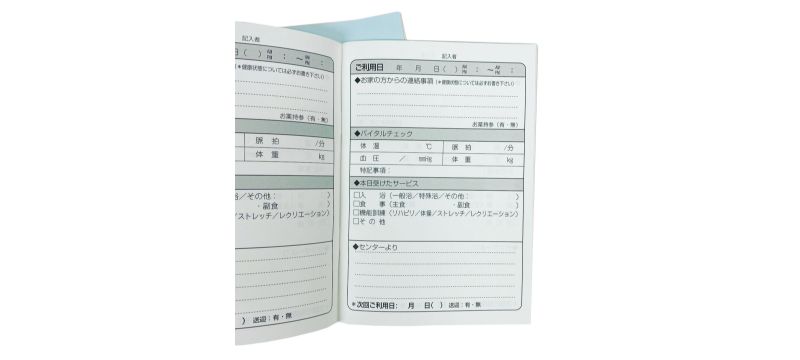 記入者
日( ) 開所 : ~開所 :
(*健康状態については必ずお書き下さい)
お薬持参(有・無)
脈 拍 /分
体 重 kg
浴/その他: )
・副食 )
/ストレッチ/レクリエーション)
) 送迎:有・無
記入者
ご利用日 年 月 日( ) : ~ :
◆お家の方からの連絡事項(*健康状態については必ずお書き下さい)
お薬持参(有・無)
◆バイタルチェック
体 温 ℃ 脈 拍 /分
血 圧 / mmHg 体 重 kg
特記事項:
◆本日受けたサービス
□入 浴(一般浴/特殊浴/その他: )
□食 事(主食 ・副食 )
□機能訓練(リハビリ/体操/ストレッチ/レクリエーション)
□そ の 他
◆センターより
*次回ご利用日: 月 日( ) 送迎:有・無